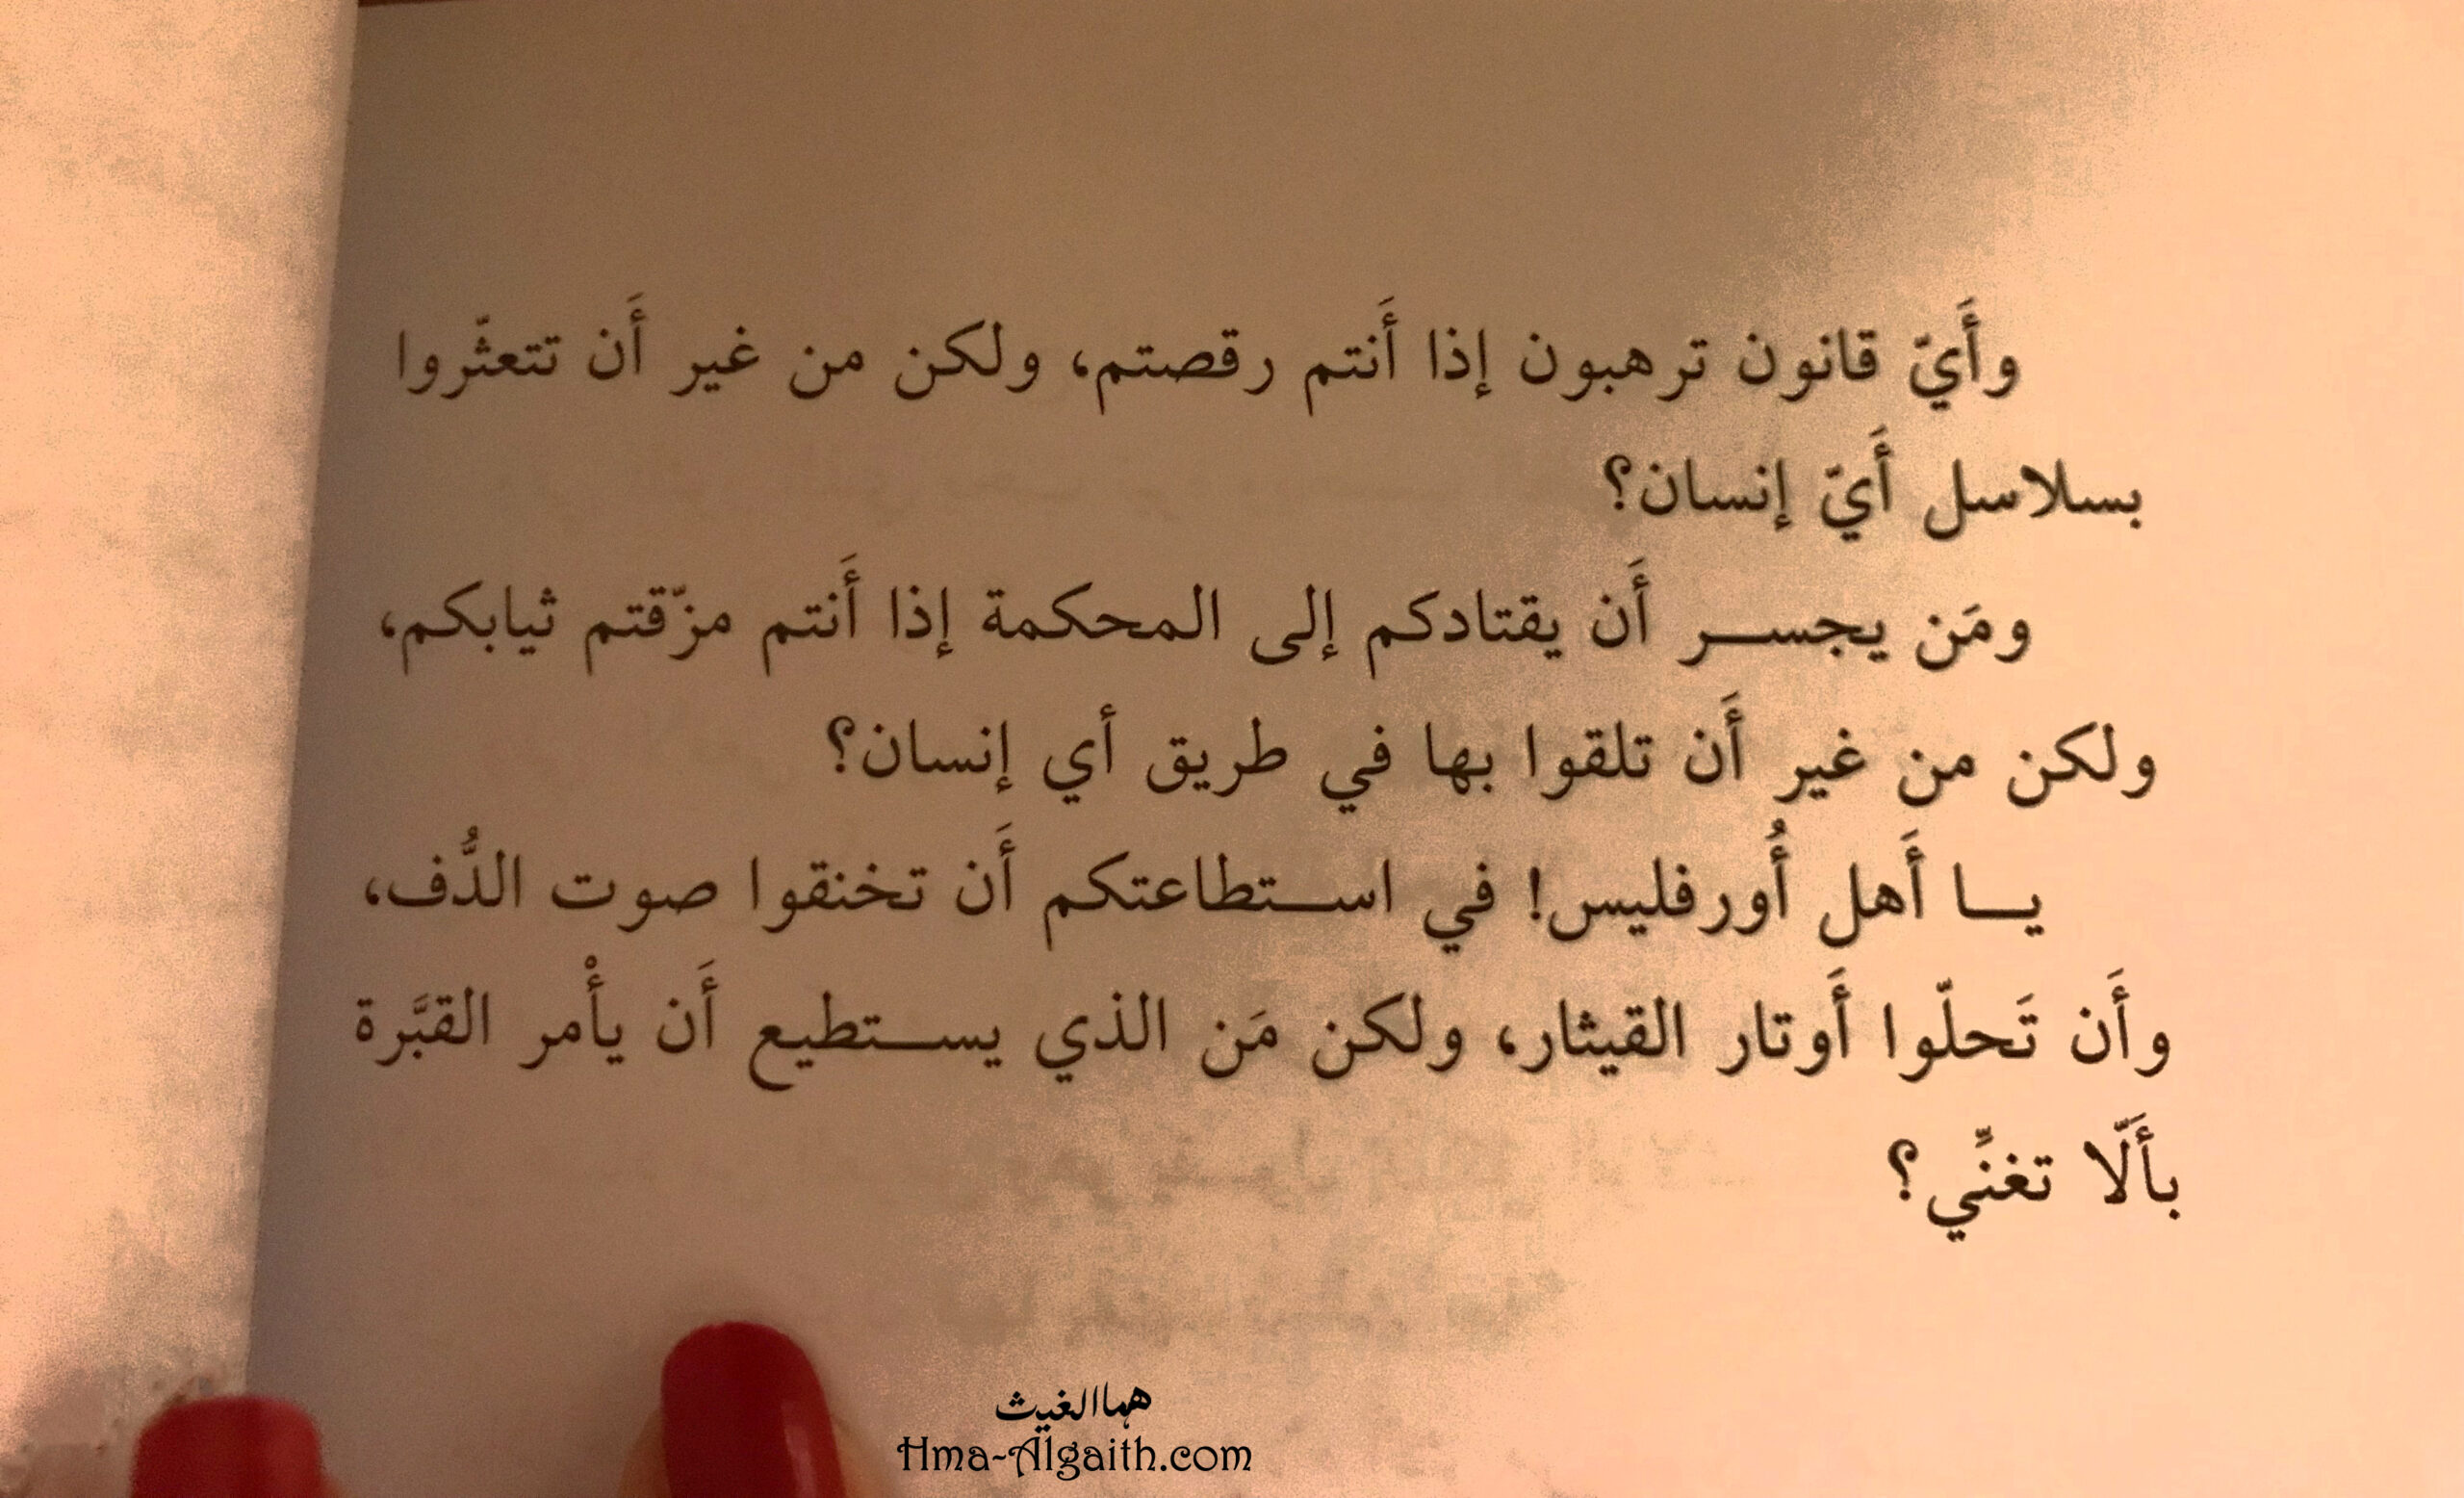 وأَيّ قانون ترهبون إذا أَنتم رقصتم، ولكن من غير أَن تتعثّروا
بسلاسل أَيّ إنسان؟
ومَن يجســر أَن يقتادكم إلى المحكمة إذا أَنتم مزّقتم ثيابكم،
ولكن من غير أَن تلقوا بها في طريق أي إنسان؟
يــا أَهل أُورفليس! في اســتطاعتكم أَن تخنقوا صوت الدُّف،
وأَن تَحلّوا أَوتار القيثار، ولكن مَن الذي يســتطيع أَن يأْمر القبَّرة
بأَلّا تغنِّي؟
هماالغيث
Hma-Algaith.com